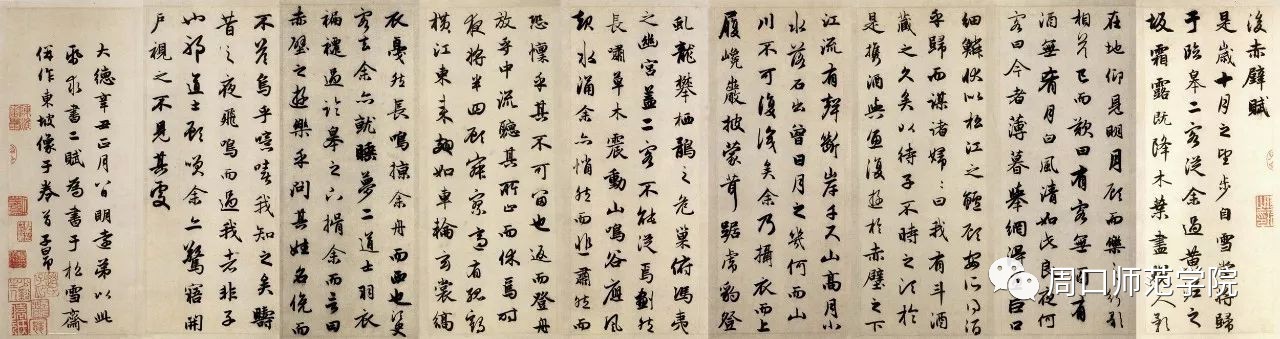 後赤壁賦
是歲十月之望步自雪堂將歸
于臨皋二客從余過黃泥之
坂霜露既降木葉盡脫人影
在地仰見明月顧而樂之行歌
相答已而歎曰有客無酒有
酒無肴月白風清如此良夜何
客曰今者薄暮舉網得魚巨口
細鱗狀似松江之鱸顧安所得酒
乎歸而謀諸婦婦曰我有斗酒
藏之久矣以待子不時之須於
是攜酒與魚復遊於赤壁之下
江流有聲斷岸千尺山高月小
水落石出曾日月之幾何而山
川不可復識矣余乃攝衣而上
履巉巖披蒙茸踞虎豹登
虬龍攀栖鶻之危巢俯馮夷
之幽宮蓋二客不能從焉劃然
長嘯草木震動山鳴谷應風
起水涌余亦悄然而悲肅然而
恐懍乎其不可留也返而登舟
放乎中流聽其所止而休焉時
夜將半四顧寂寥適有孤鶴
橫江東來翅如車輪玄裳縞
衣戛然長鳴掠余舟而西也須臾
客去余亦就睡夢二道士羽衣
褊褼過臨皋之下揖余而言曰
赤壁之遊樂乎問其姓名俛而
不答嗚呼噫嘻我知之矣疇
昔之夜飛鳴而過我者非子
也邪道士顧笑余亦驚寤開
戶視之不見其處
大德辛丑正月八日明遠弟以此
紙求書二賦為書于松雪齋
併作東坡像于卷首子昂
周口师范学院